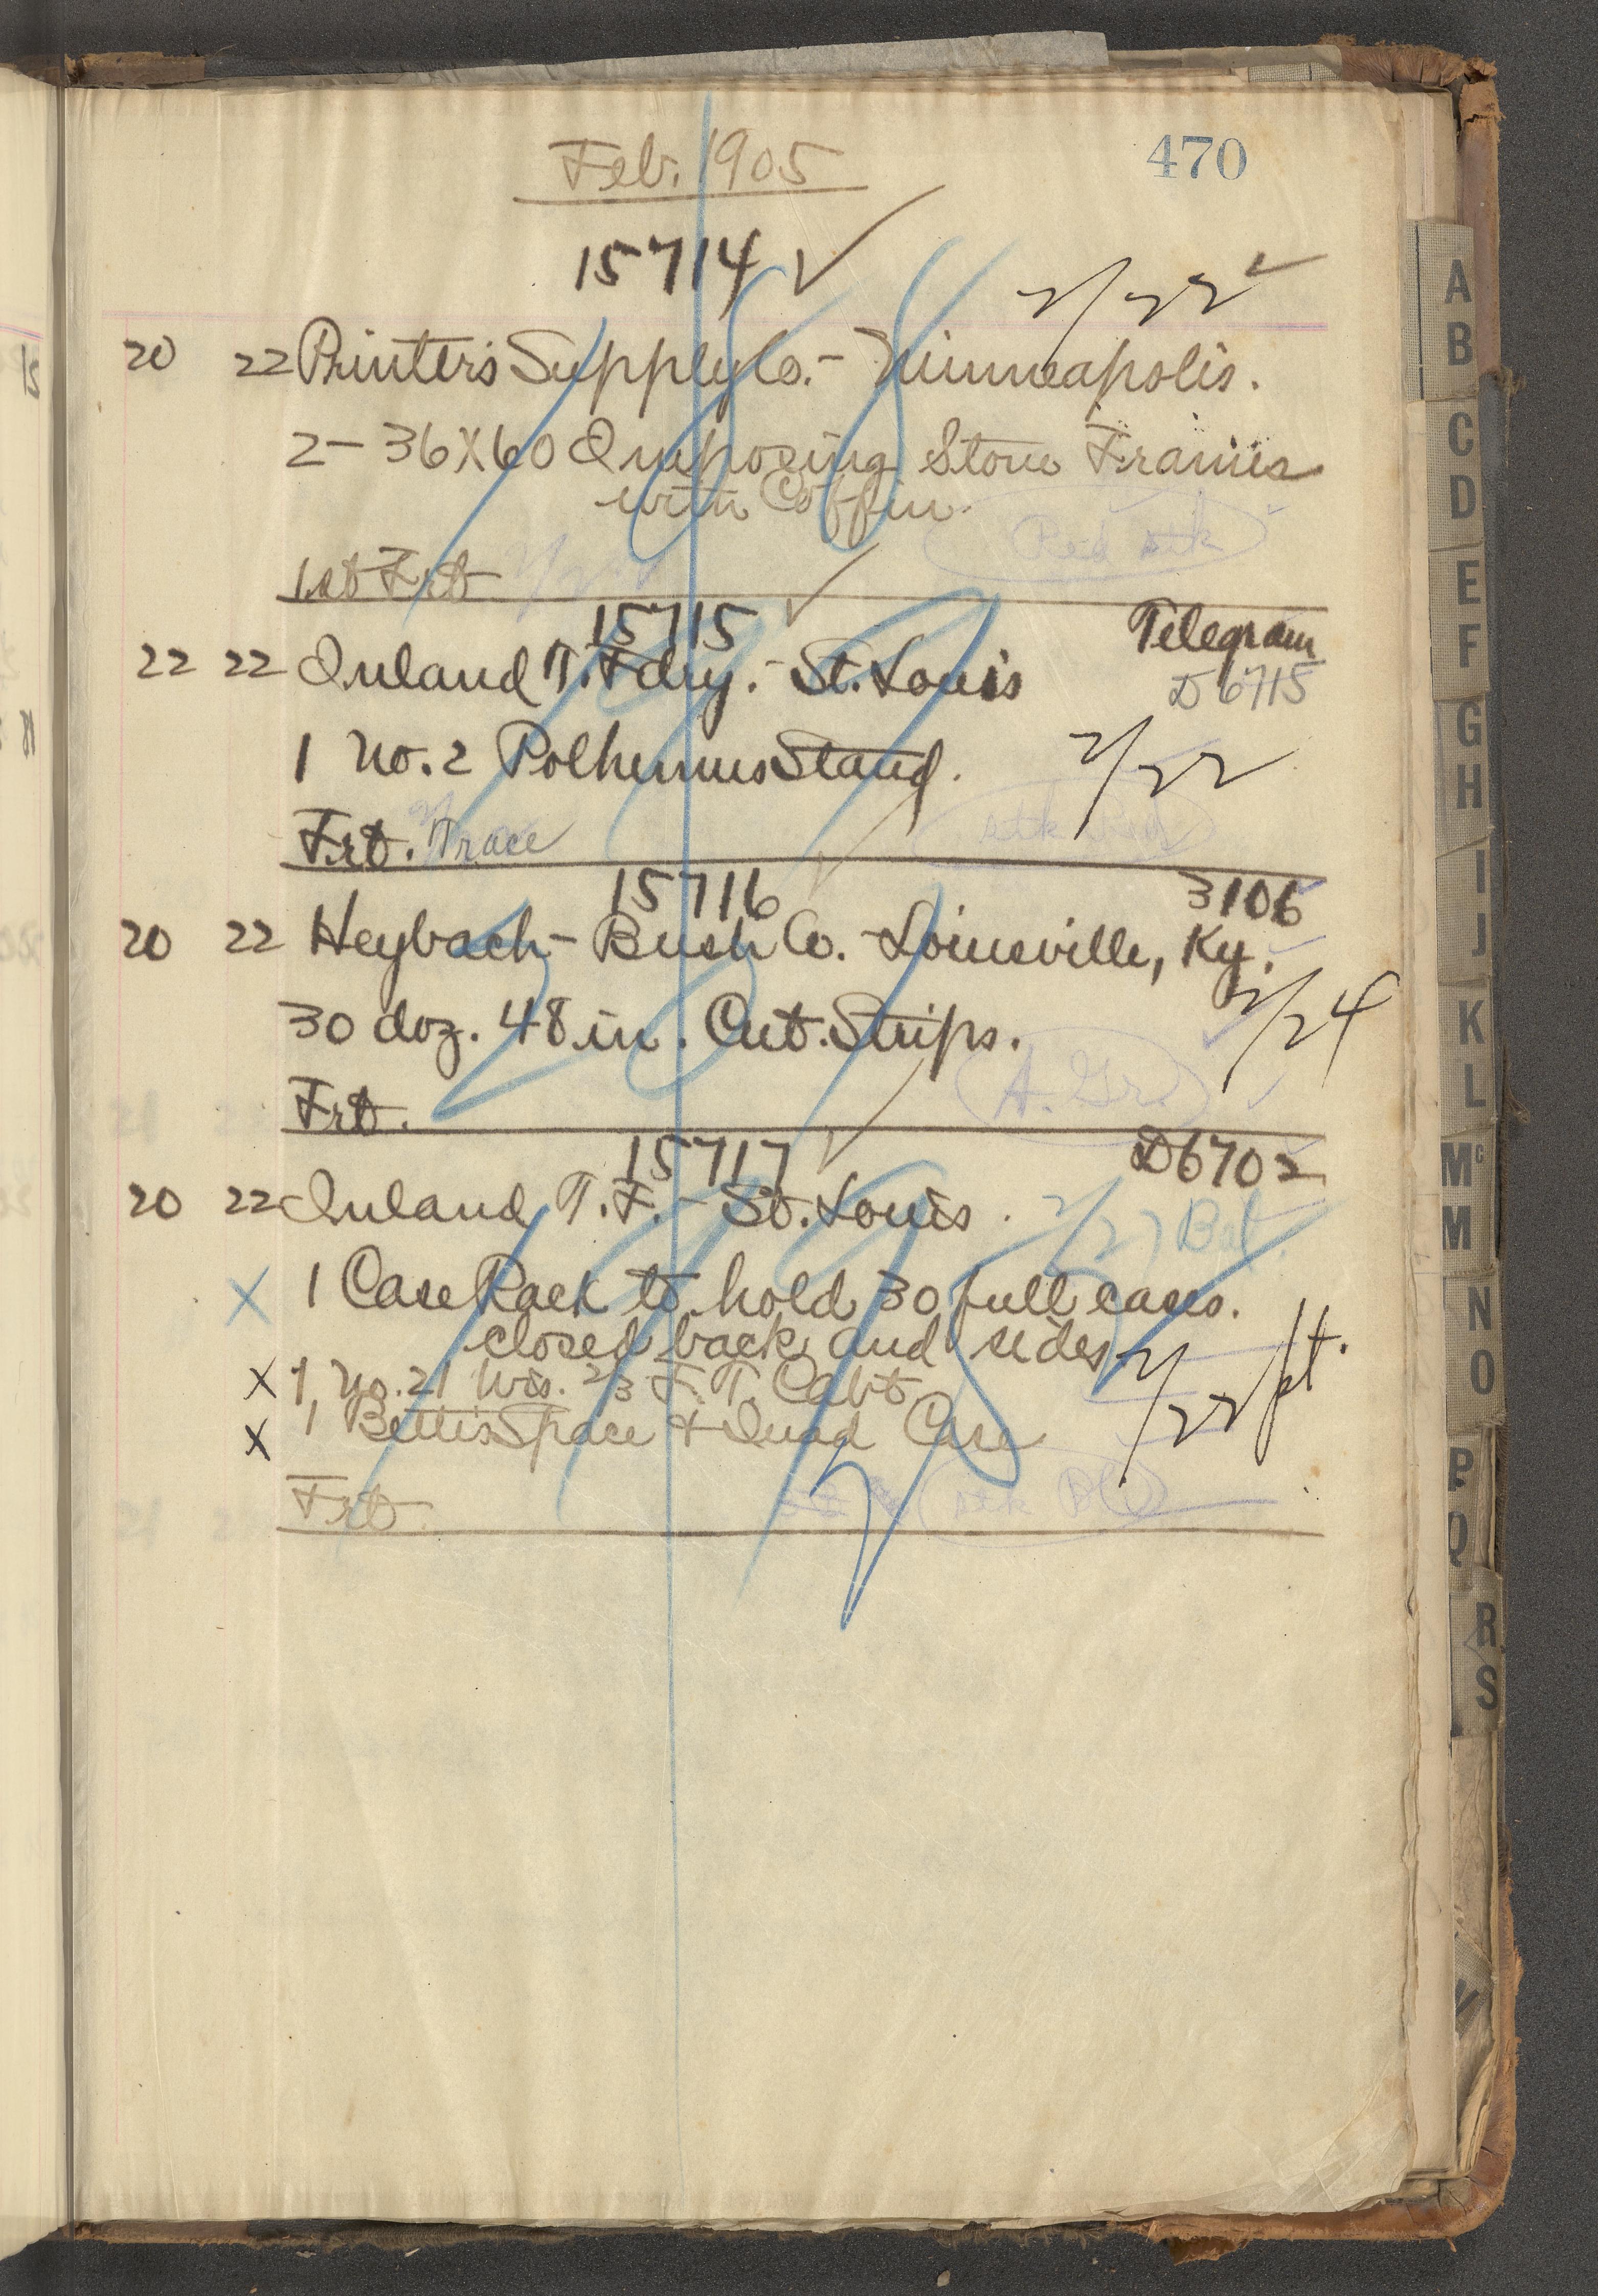 Feb. 1905
470
15714 ✓
2/22 ✓
20 22 Printer's Supply Co. - Minneapolis.
2 - 36X60 Imposing Stone Frames
with Coffin.
Red stk
1st Frt
15715 ✓
Telegram
22 22 Inland T. Fdry. - St. Louis
D 6715
1 No. 2 Polhemus Stand.
2/22
Frt. Trace
15716 ✓
3106
20 22 Heybach - Bush Co. - Louisville, Ky.
2/24
30 doz. 48 in. Cut. Strips.
A. Gr.
Frt.
15717 ✓
D6702
20 22 Inland T. F. - St. Louis.
2/27 Bal.
X 1 Case Rack to hold 30 full cases.
closed back and sides
X 1 No. 21 Wis. 2/3 F. T. Cabt
2/22 pt.
X 1 Bettis Space + Quad Case
Frt.
A
B
C
D
E
F
G
H
I
J
K
L
Mc
M
N
O
P
Q
R
S